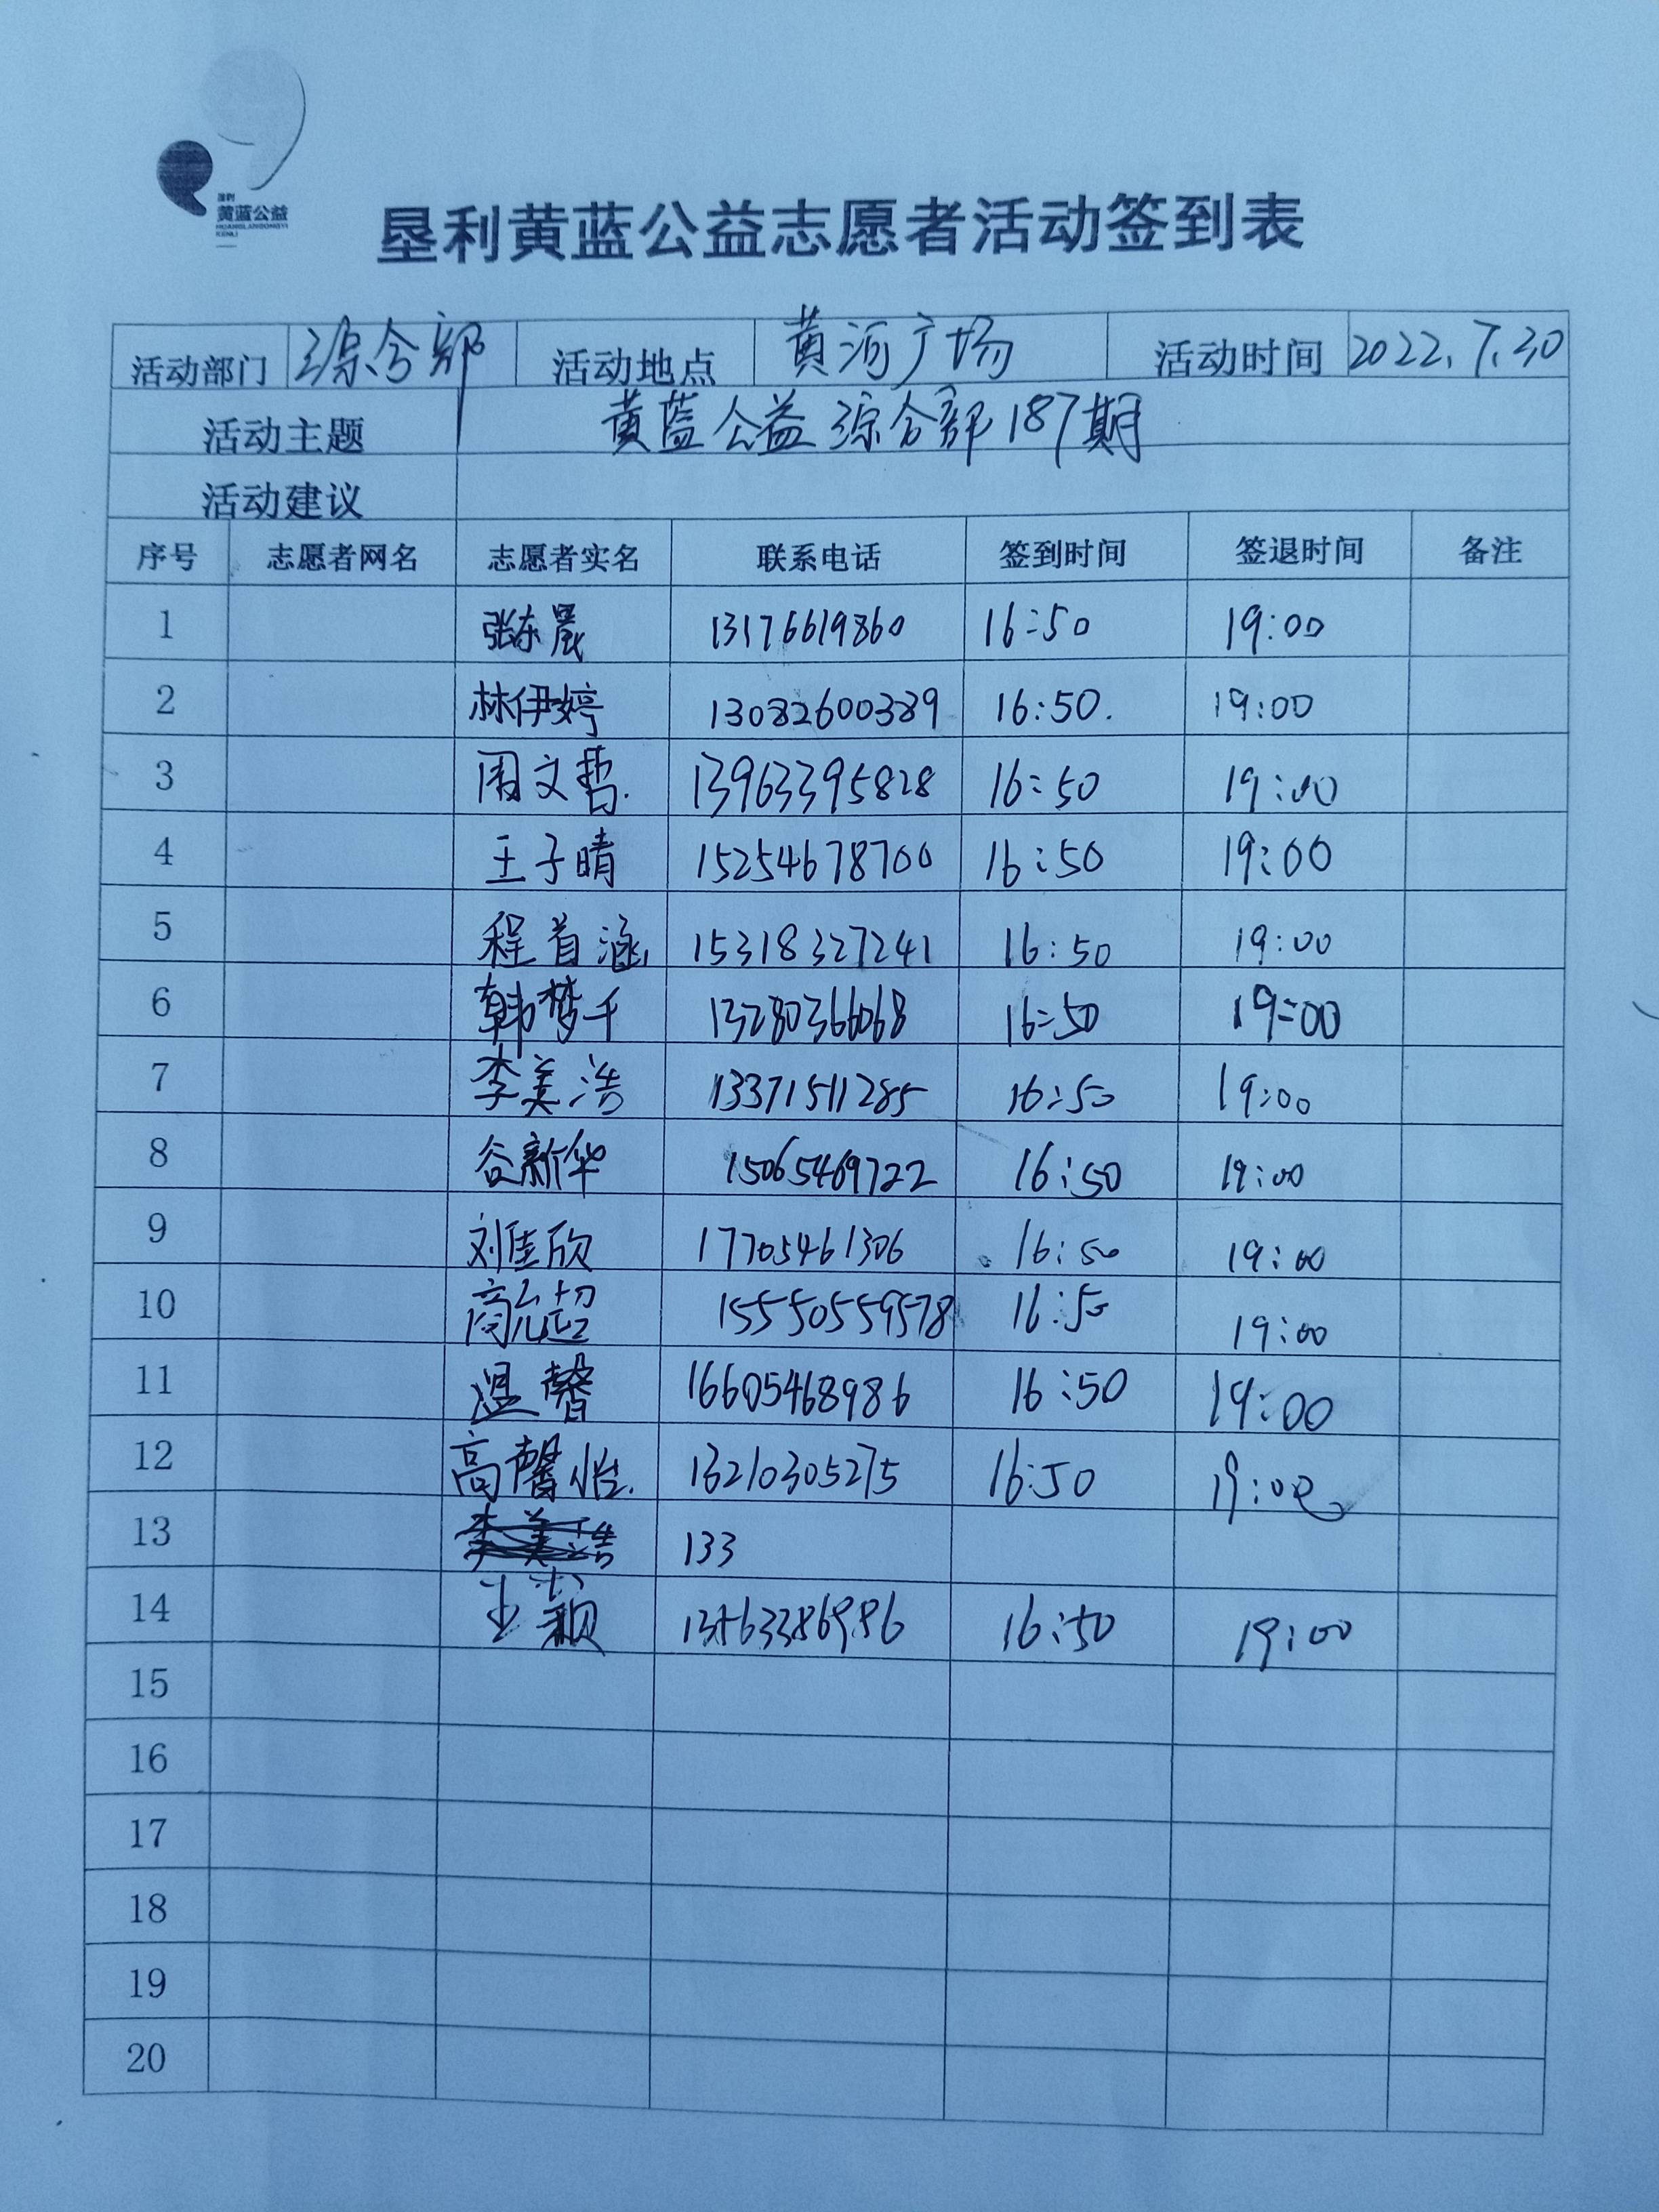 垦利
黄蓝公益
HUANGLANGONGYI
KENLI
垦利黄蓝公益志愿者活动签到表
活动部门 综合部 活动地点 黄河广场 活动时间 2022.7.30
活动主题 黄蓝公益综合部187期
活动建议
序号 志愿者网名 志愿者实名 联系电话 签到时间 签退时间 备注
1 张东晟 13176619860 16:50 19:00
2 林伊婷 13082600389 16:50. 19:00
3 周文哲. 13963395828 16:50 19:00
4 王子晴 15254678700 16:50 19:00
5 程首涵 15318327241 16:50 19:00
6 韩梦千 13280366068 16:50 19:00
7 李美浩 13371511285 16:50 19:00
8 谷新华 15065469722 16:50 19:00
9 刘佳欣 17705461306 16:50 19:00
10 商允超 15550559578 16:50 19:00
11 温馨 16605468986 16:50 19:00
12 高馨怡. 13210305275 16:50 19:00
13 李美浩 133
14 王颖 13563386986 16:50 19:00
15
16
17
18
19
20